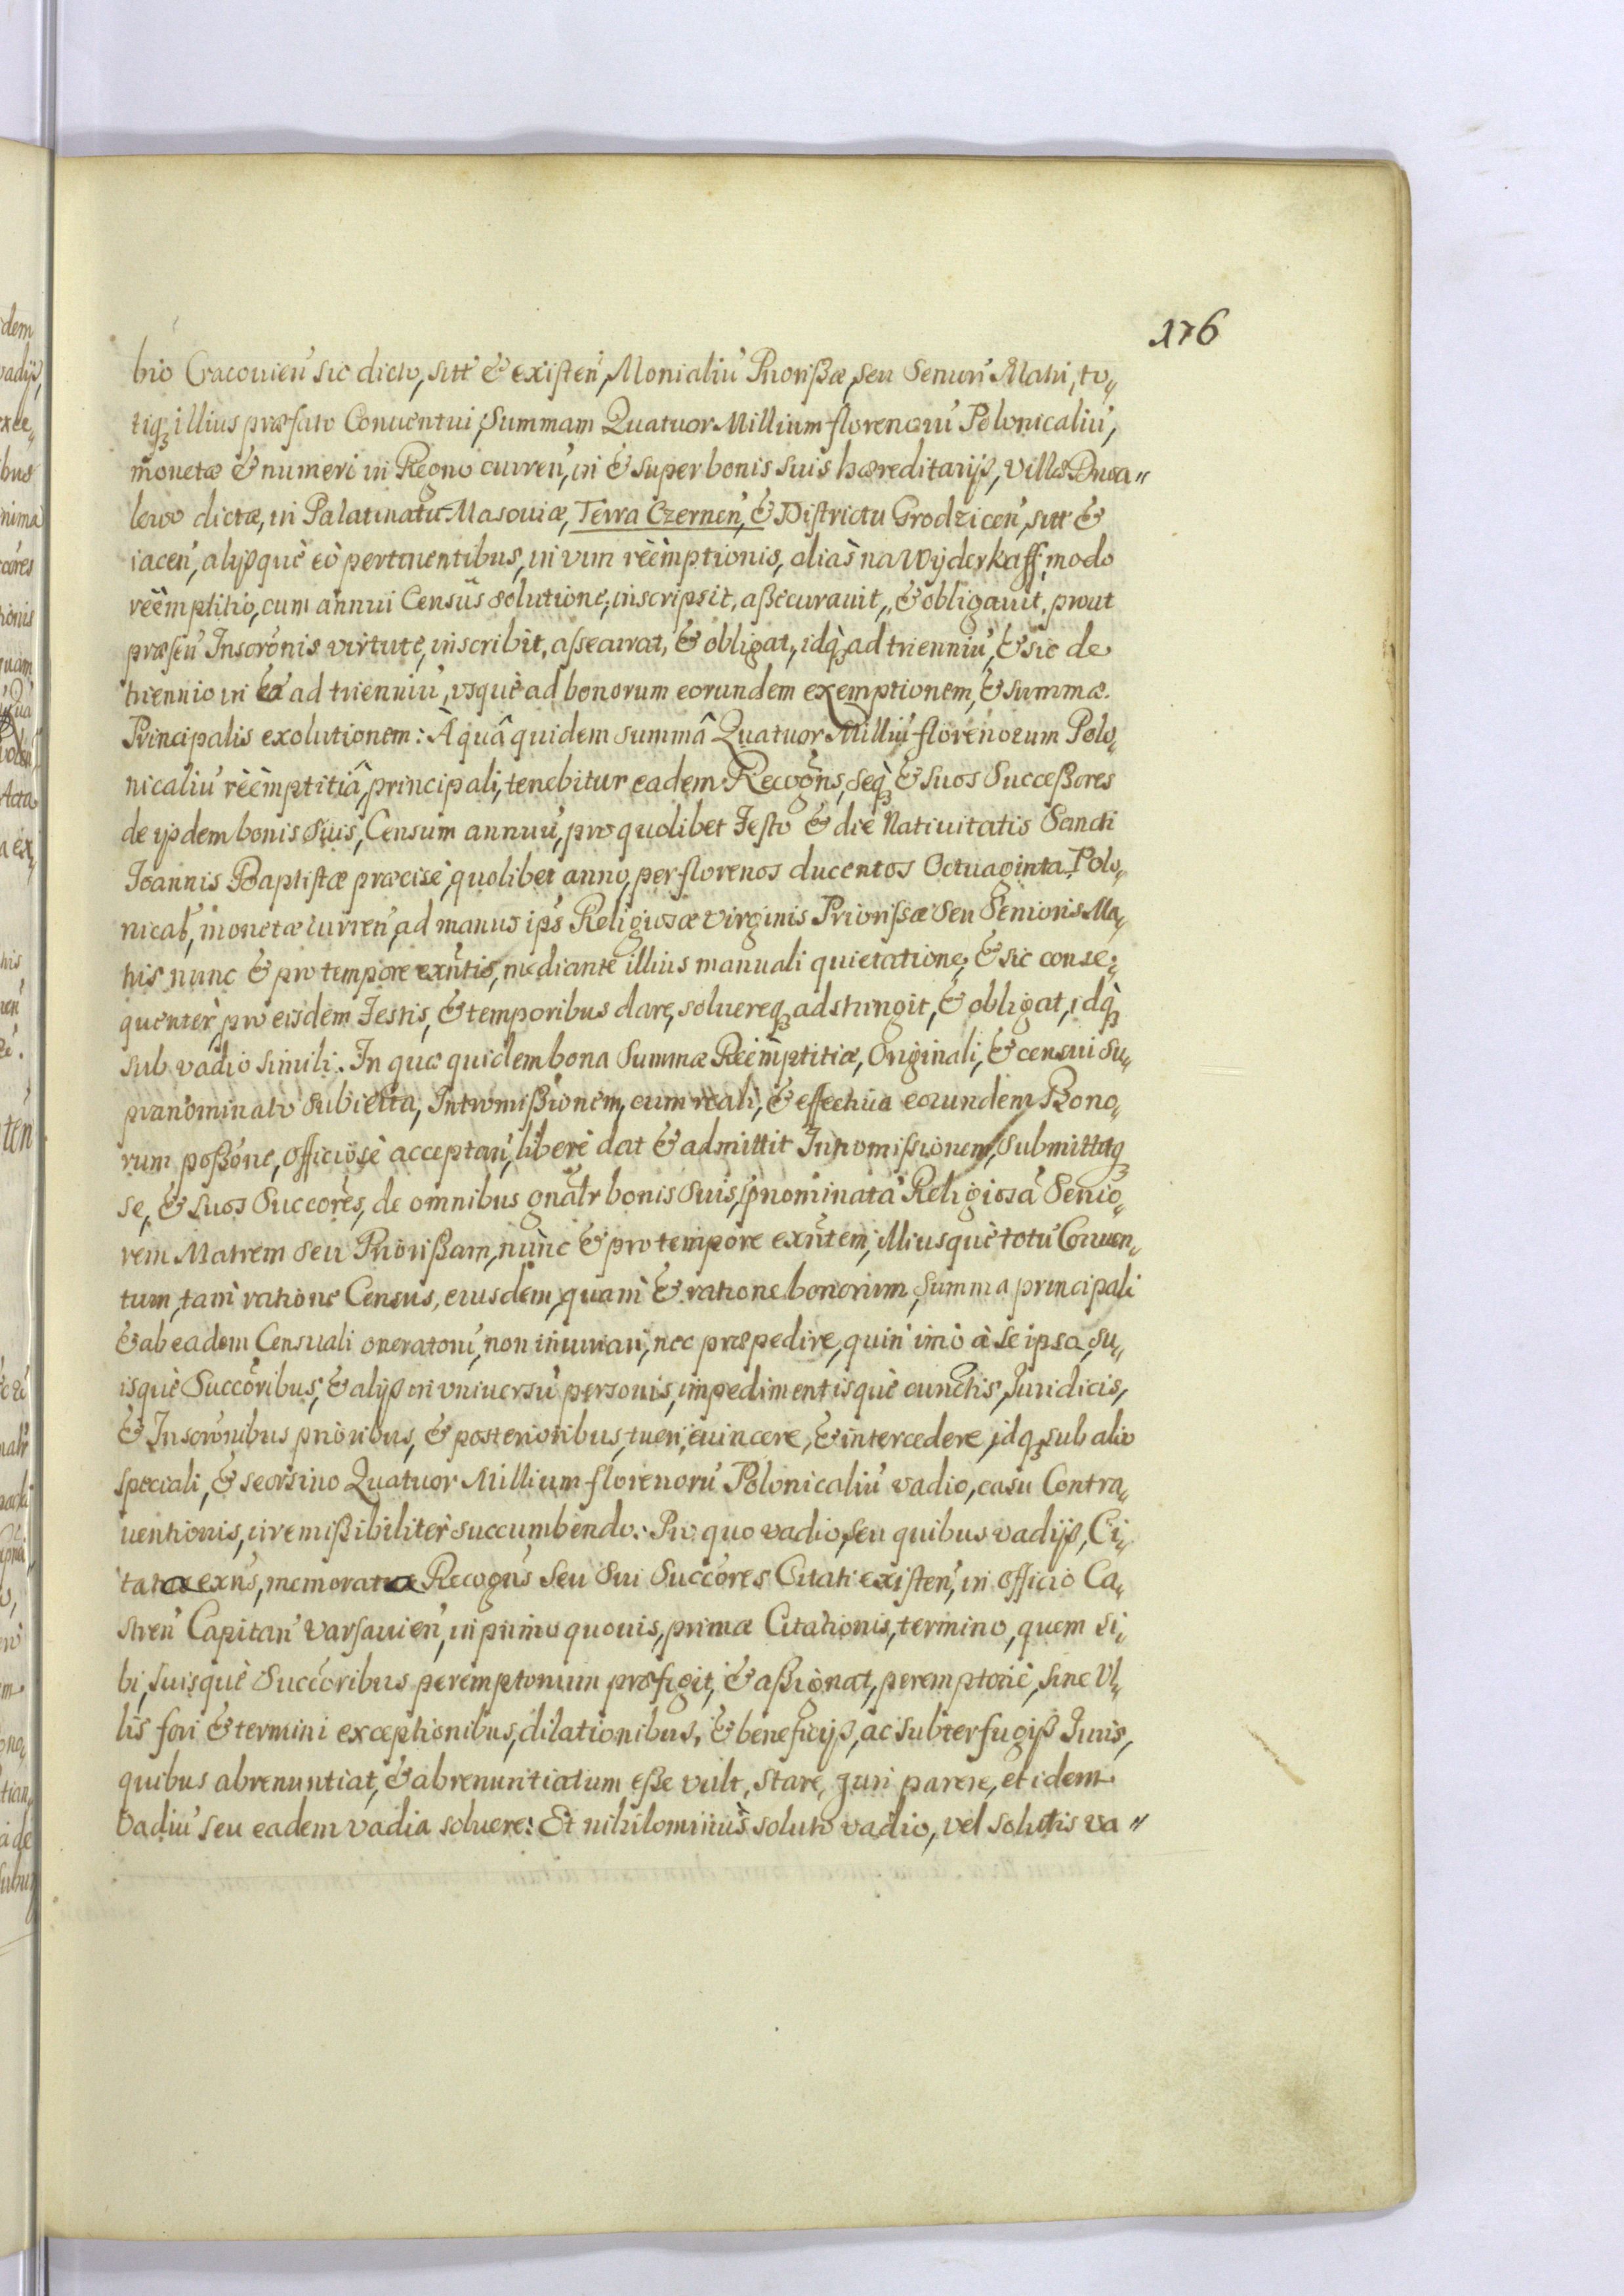 176
bio Cracouień sic dicto, sitt & existeń, Monialiú Priorißæ, seu Seniori Matri, to„
tiq; illius præfato Conuentui, Summam Quatuor Millium florenorú Polonicaliú,
monetæ & numeri in Regno curreń, in & super bonis suis hæreditarijs, Villæ
lewo dictæ, in Palatinatu Masouiæ, Terra Czerneń, & Districtu Grodziceń, sitt &
iaceń, alijsquè eò pertinentibus, in vim rèémptionis, aliàs na Wyderkaff, modo
rèèmptitio, cum annui Censûs solutione, inscripsit, aßecurauit, & obligauit, prout
præseń Inscrōnis virtute, inscribit, assecurat, & obligat, idq; ad trienniú, & sic de
triennio in ad trienniú, vsquè ad bonorum eorundem exemptionem, & summæ
Principalis exolutionem: À quâ quidem summâ Quatuor Milliú florenorum Polo„
nicaliú rèèmptitiâ, principali, tenebitur eadem Recogns, seq; & suos Succeßores
de ijsdem bonis suis, Censum annuú, pro quolibet Festo & die Natiuitatis Sancti
Joannis Baptistæ præcisè, quolibet anno, per florenos ducentos Octuaginta Polo„
nical, monetæ curreń, ad manus ips Religiosæ Virginis Priorissæ seu Senioris Ma„
tris nunc & pro tempore exntis, mediante illius manuali quietatione, & sic conse„
quentèr, pro eisdem Festis, & temporibus dare, soluereq; adstringit, & obligat, idq;
sub vadio simili. In quæ quidem bona Summæ Rèèmptitiæ, Originali, & censui su„
pranominato subiecta, Intromißionem, cum reali, & effectiua eorundem Bono„
rum poßōne, officiosè acceptań, liberè dat & admittit Intromissionem, submittitq;
se, & suos Succores, de omnibus gnatr bonis suis, pnominatá Religiosá Senio„
rem Matrem seu Priorißam, nunc & pro tempore exntem, illiusquè totú Conuen„
tum, tam ratione Census, eiusdem, quam & ratione bonorum, summa principali
& ab eadem Censuali oneratorú, non iniuriari, nec præpedire, quin imò à se ipsa, su„
isquè Succoribus, & alijs in vniuersú personis, impedimentisquè cunctis, Juridicis,
& Inscronibus prioribus, & posterioribus, tueri, euincere, & intercedere, idq; sub alio
speciali, & seorsiuo Quatuor Millium florenorú Polonicaliú vadio, casu Contra„
uentionis, irremißibilitèr succumbendo: Pro quo vadio, seu quibus vadijs, Ci„
tata exns, memorata Recogns seu Sui Succores Citati existeń, in officio Ca„
streń Capitań Varsauień, in primo quouis, primæ Citationis, termino, quem si„
bi, suisquè Succoribus peremptorium præfigit, & aßignat, peremptoriè, sine Ul„
lis fori & termini exceptionibus, dilationibus, & beneficijs, ac subterfugijs Juris,
quibus abrenuntiat, & abrenuntiatum eße vult, stare, Juri parere, et idem
Vadiú seu eadem vadia soluere: Et nihilominùs soluto vadio, vel solutis va„